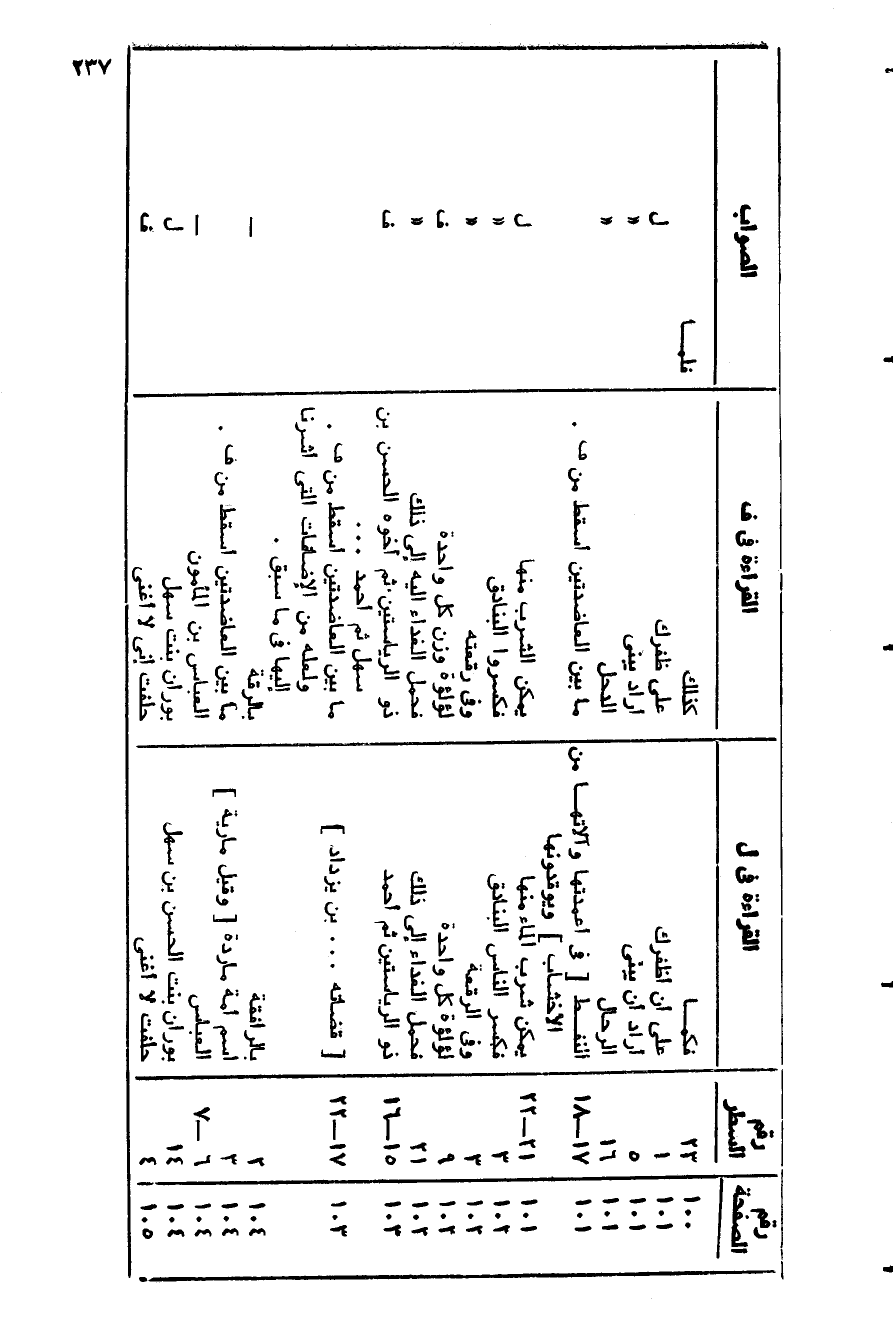 ٢٣٧
رقم الصفحة | رقم السطر | القراءة فى ل | القراءة فى ف | الصواب
١٠٠ | ٢٣ | فكمـــا | كذلك | فلمـــا
١٠١ | ١ | على أن أظفرك | على ظفرك | ل
١٠١ | ٥ | أراد أن يبنى | أراد يبنى | »
١٠١ | ١٦ | الرحال | الدحل | »
١٠١ | ١٧—١٨ | النفــط [ فى أعمدتها وآلاتهــا من | ما بين العاضدتين أسقط من ف .
الأخشاب ] ويوقدونها
١٠١ | ٢١—٢٢ | يمكن شرب الماء منها | يمكن الشرب منها | ل
١٠٢ | ٣ | فكسر الناس البنادق | فكسروا البنادق | »
١٠٢ | ٣ | وفى الرقعة | وفى رقعته | »
١٠٢ | ٩ | لؤلؤة كل واحدة | لؤلؤة وزن كل واحدة | ف
١٠٢ | ٢١ | فحمل الفداء إلى ذلك | فحمل الفداء اليه إلى ذلك | »
١٠٣ | ١٥—١٦ | ذو الرياستين ثم أحمد | ذو الرياستين ثم أخوه الحسن بن | ف
سهل ثم أحمد ...
١٠٣ | ١٧—٢٢ | [ قضاته ... بن يزداد ] | ما بين العاضدتين أسقط من ف .
ولعله من الإضافات التى أشرنا
إليها فى ما سبق .
١٠٤ | ٢ | بالرافقة | بالرقة | —
١٠٤ | ٣ | اسم أمة ماردة [ وقيل مارية ] | ما بين العاضدتين أسقط من ف .
١٠٤ | ٦—٧ | العباس | العباس بن المأمون | —
١٠٤ | ١٤ | بوران بنت الحسن بن سهل | بوران بنت سهل | ل
١٠٥ | ٤ | حلفت لا أغنى | حلفت إنى لا أغنى | ف